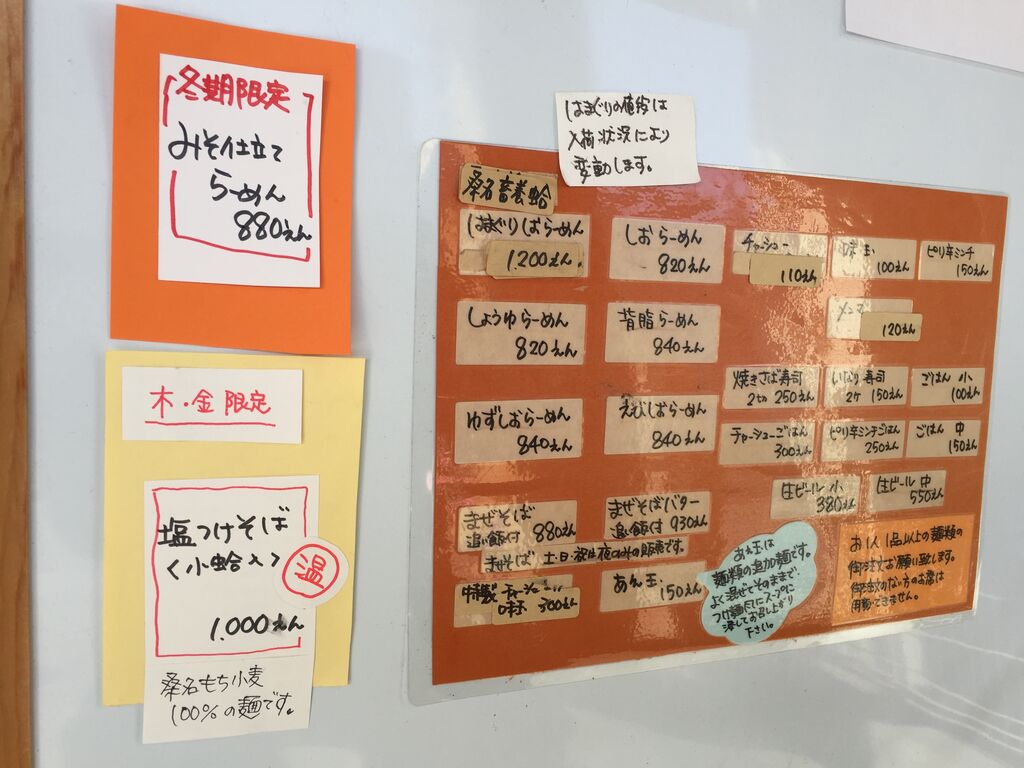 冬期限定
みそ仕立て
らーめん
880えん
木・金限定
塩つけそば
<小蛤入>
温
1.000えん
桑名もち小麦
100%の麺です。
はまぐりの値段は
入荷状況により
変動します。
桑名畜養蛤
はまぐりしおらーめん
1.200えん
しおらーめん
820えん
チャーシュー
110えん
味玉
100えん
ピリ辛ミンチ
150えん
しょうゆらーめん
820えん
背脂らーめん
840えん
メンマ
120えん
ゆずしおらーめん
840えん
えびしおらーめん
840えん
焼きさば寿司
2切 250えん
いなり寿司
2ケ 150えん
ごはん 小
100えん
チャーシューごはん
300えん
ピリ辛ミンチごはん
250えん
ごはん 中
150えん
まぜそば
追い飯付 880えん
まぜそばバター
追い飯付 930えん
生ビール 小
380えん
生ビール 中
550えん
まぜそば 土・日・祝は夜のみの販売です。
特製 チャーシュー
味玉 300えん
あえ玉
150えん
あえ玉は
麺類の追加麺です。
よく混ぜてそのままで、
つけ麺風にスープに
浸してお召し上がり
下さい。
お1人1品以上の麺類の
御注文お願い致します。
御注文のない方のお席は
用意できません。